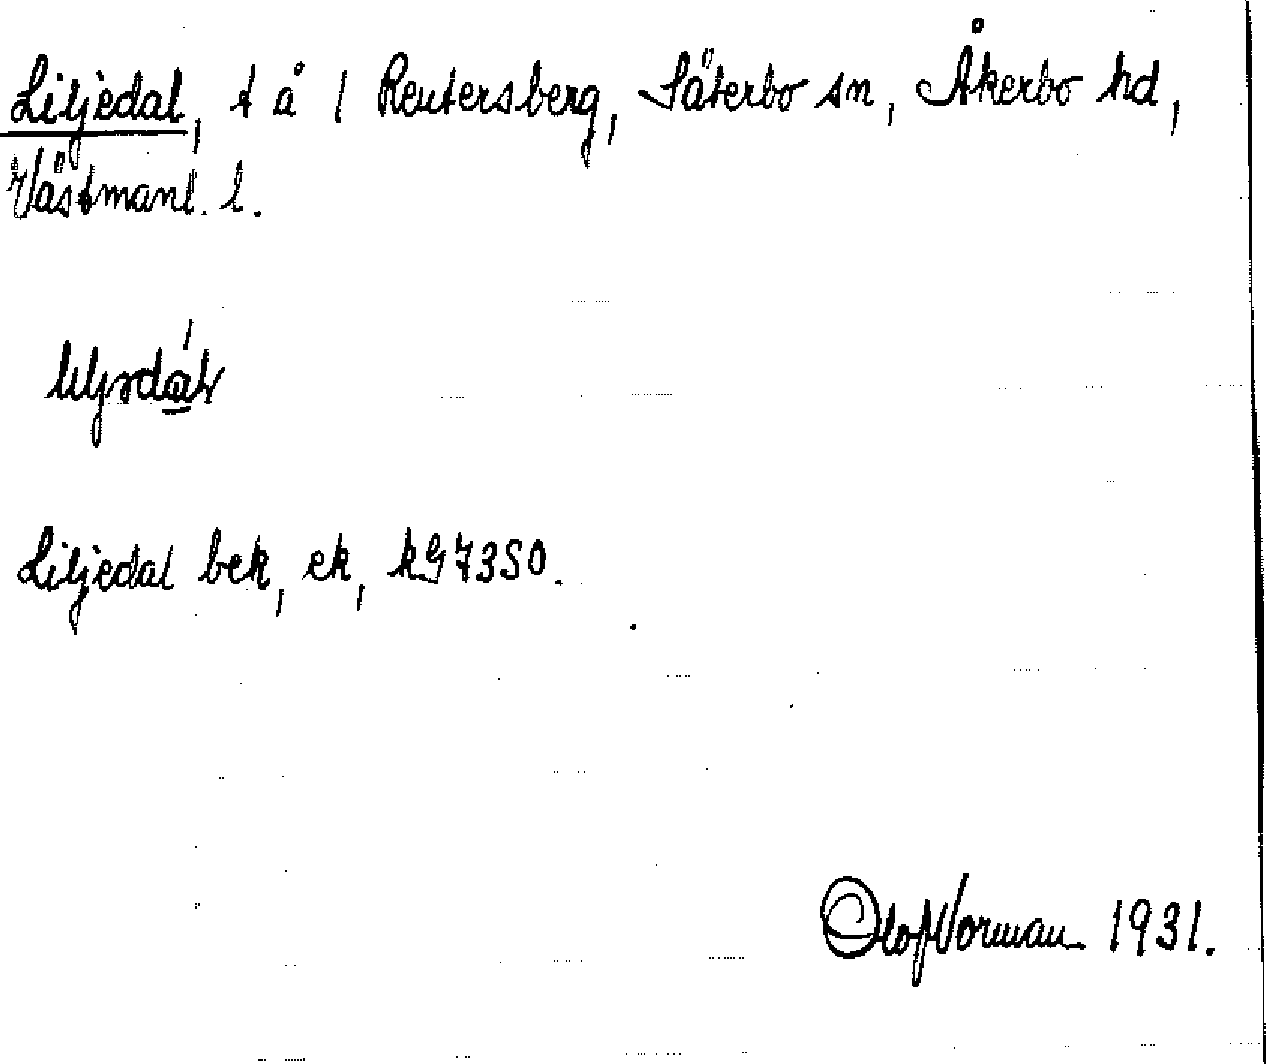 Liljedal, t å 1 Reutersberg, Säterbo sn, Åkerbo hd,
Västmanl. l.
Liljedal bek, ek, kG7350.
Olof Norman 1931.